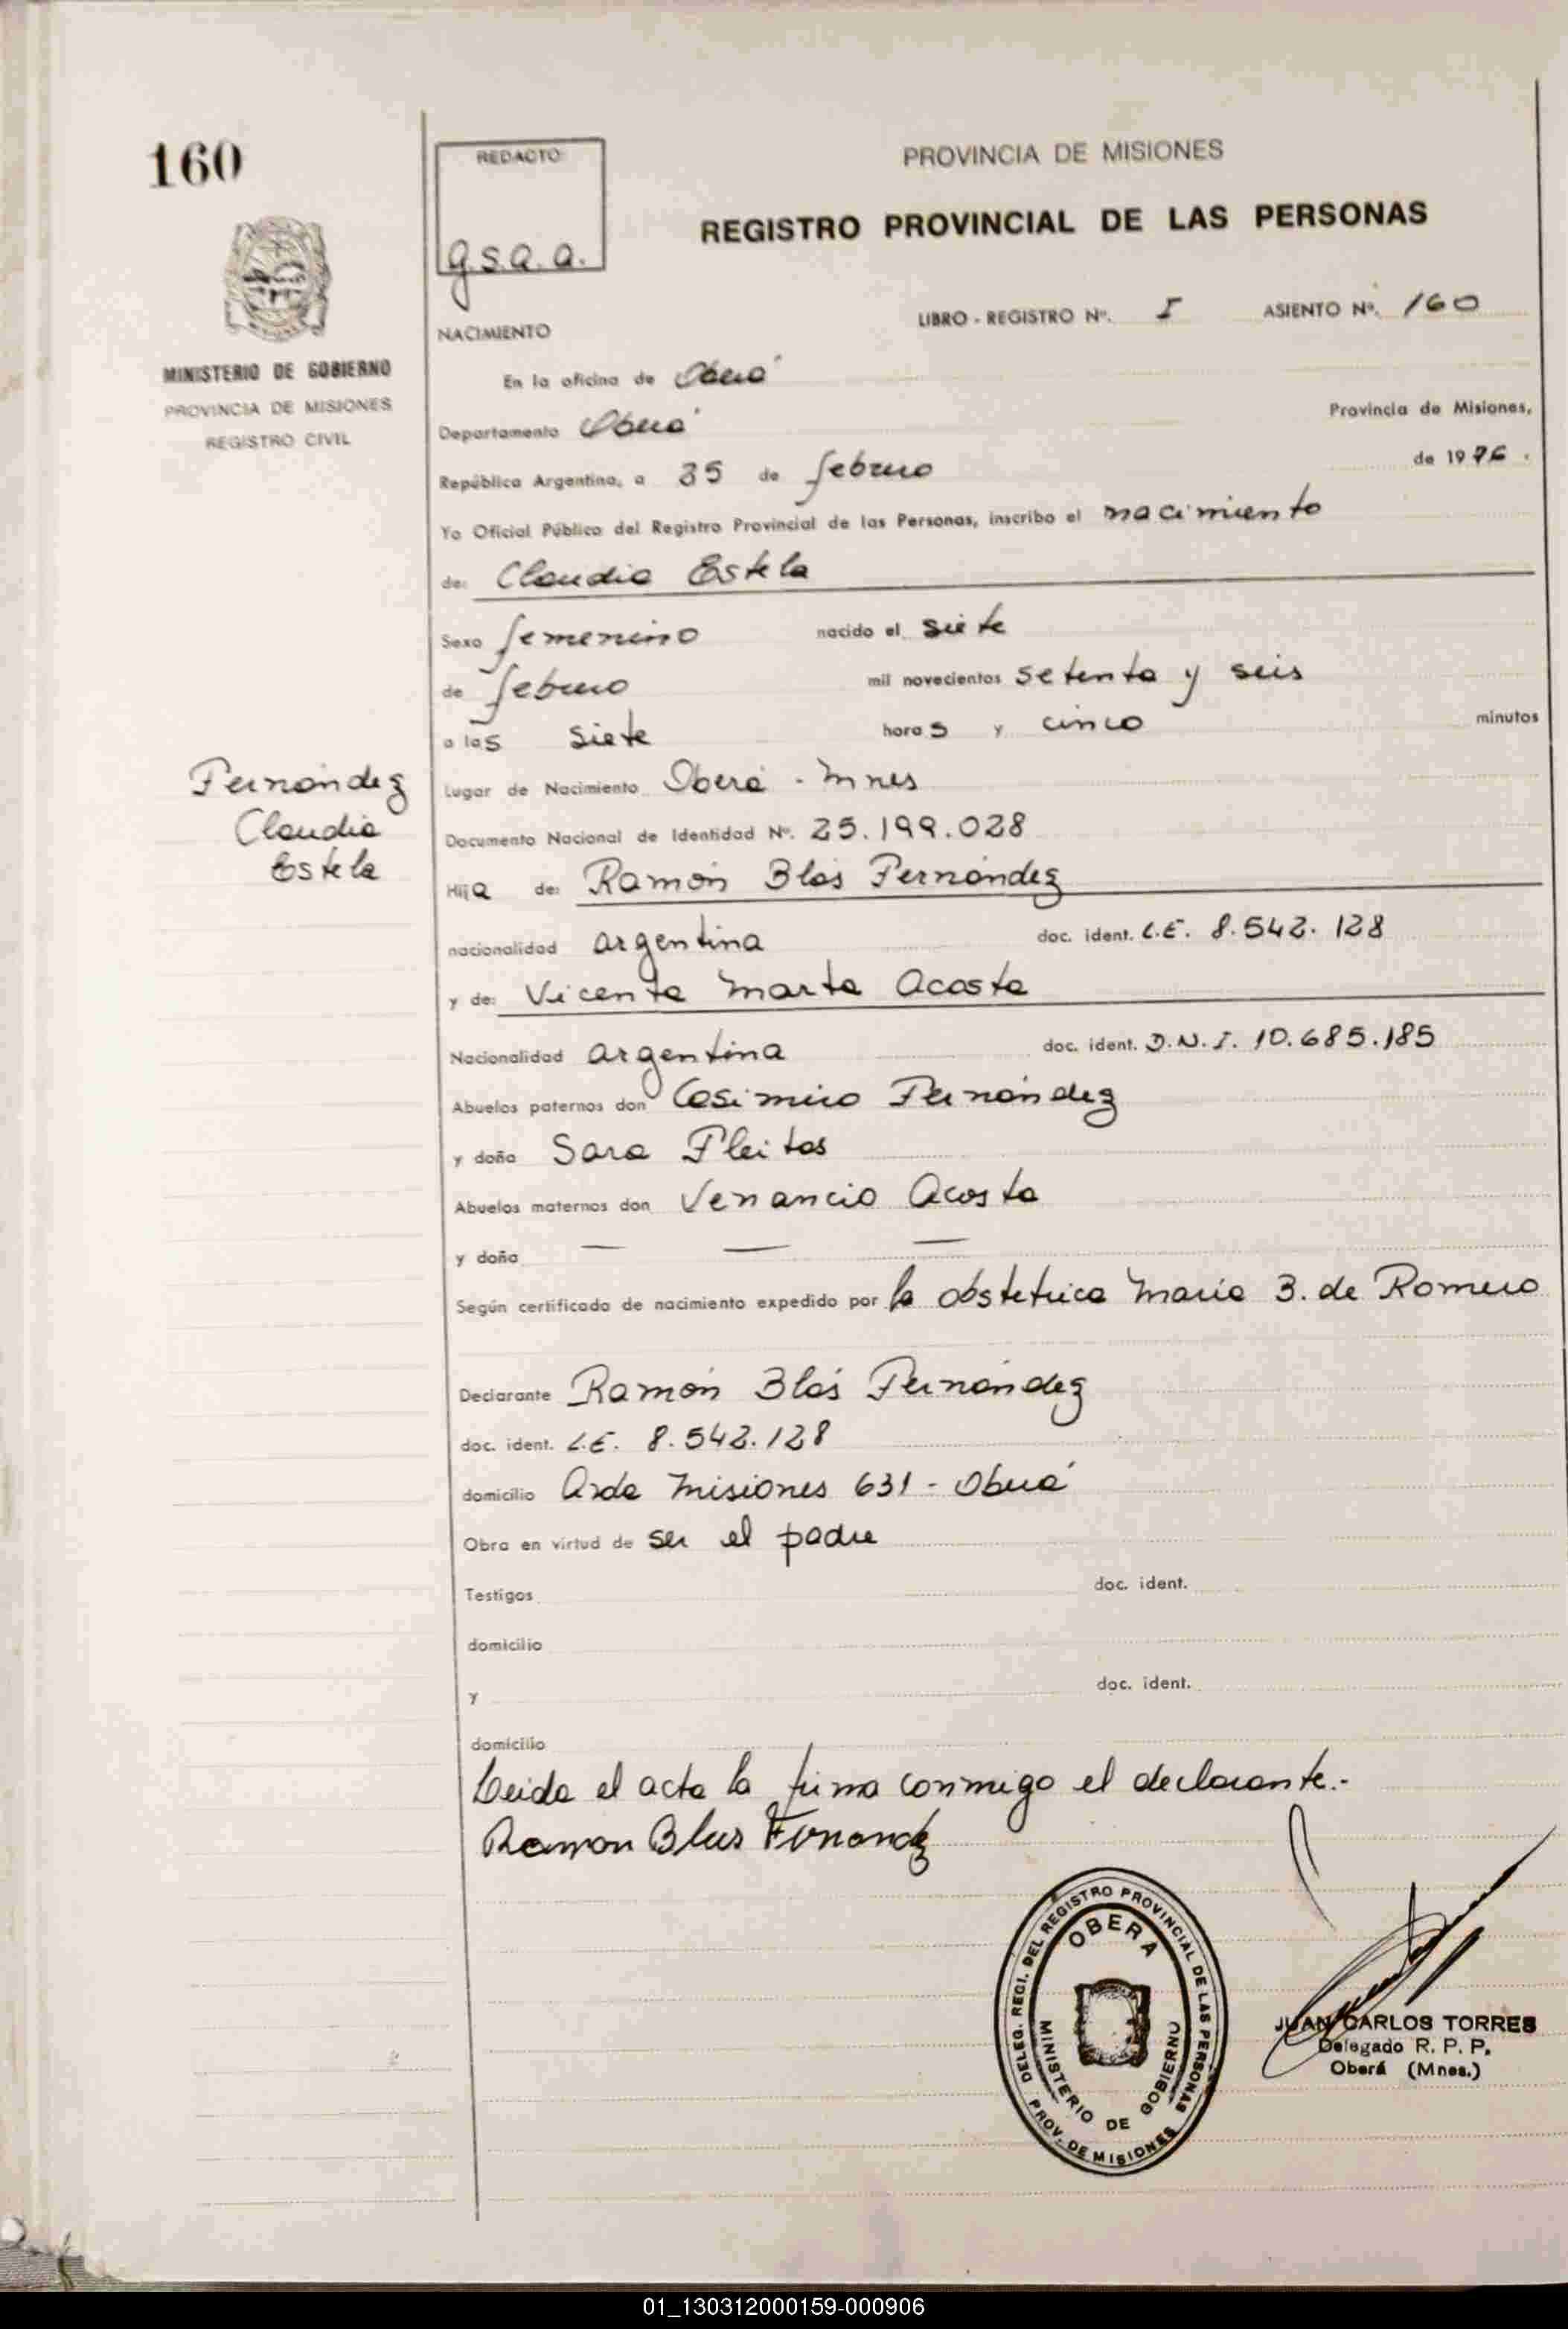 160
REDACTO:
g.s.a.a.
PROVINCIA DE MISIONES
REGISTRO PROVINCIAL DE LAS PERSONAS
LIBRO - REGISTRO Nº. I ASIENTO Nº. 160
NACIMIENTO
MINISTERIO DE GOBIERNO
PROVINCIA DE MISIONES
REGISTRO CIVIL
En la oficina de Oberá
Departamento Oberá Provincia de Misiones,
República Argentina, a 25 de febrero de 1976.
Yo Oficial Público del Registro Provincial de las Personas, inscribo el nacimiento
de: Claudia Estela
Sexo femenino nacido el siete
de febrero mil novecientos setenta y seis
a las siete horas y cinco minutos
Fernández
Claudia
Estela
Lugar de Nacimiento Oberá - Mnes
Documento Nacional de Identidad Nº. 25.199.028
Hija de: Ramón Blás Fernández
nacionalidad argentina doc. ident. L.E. 8.542.128
y de: Vicenta Marta Acosta
Nacionalidad argentina doc. ident. D.N.I. 10.685.185
Abuelos paternos don Casimiro Fernández
y doña Sara Fleitas
Abuelos maternos don Venancio Acosta
y doña — — —
Según certificado de nacimiento expedido por la obstetrica Maria B. de Romero
Declarante Ramón Blás Fernández
doc. ident. L.E. 8.542.128
domicilio Avda Misiones 631 - Oberá
Obra en virtud de ser el padre
Testigos doc. ident.
domicilio
y doc. ident.
domicilio
Leida el acta la firma conmigo el declarante.-
Ramon Blas Fernandez
DELEG. REGI. DEL REGISTRO PROVINCIAL DE LAS PERSONAS
OBERA
MINISTERIO DE GOBIERNO
PROV. DE MISIONES
JUAN CARLOS TORRES
Delegado R. P. P.
Oberá (Mnes.)
01_130312000159-000906